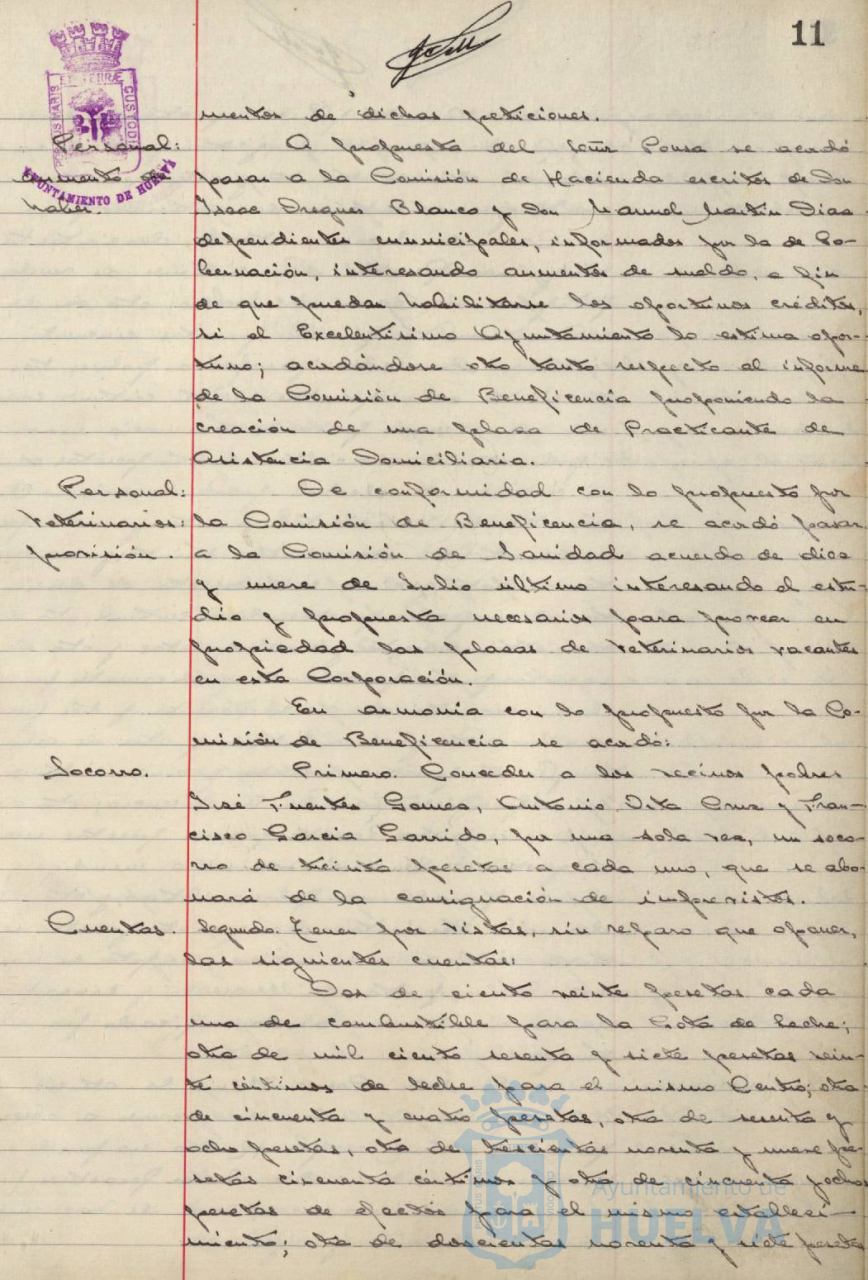 11
mentos de dichas peticiones.
Personal:
aumento de
haber.
A propuesta del señor Ponsa se acordó
pasar a la Comisión de Hacienda escritos de Don
Isaac Dregues Blanco y Don Manuel Martín Díaz
dependientes municipales, informados por la de Go-
bernación, interesando aumentos de sueldo, a fin
de que puedan habilitarse los oportunos créditos,
si el Excelentísimo Ayuntamiento lo estima opor-
tuno; acordándose otro tanto respecto al informe
de la Comisión de Beneficencia proponiendo la
creación de una plaza de Practicante de
Asistencia Domiciliaria.
Personal:
Veterinarios:
provisión.
De conformidad con lo propuesto por
la Comisión de Beneficencia, se acordó pasar
a la Comisión de Sanidad acuerdo de diez
y nueve de Julio último interesando el estu-
dio y propuesta necesarios para proveer en
propiedad las plazas de Veterinarios vacantes
en esta Corporación.
En armonía con lo propuesto por la Co-
misión de Beneficencia se acordó:
Socorro.
Primero. Conceder a los vecinos pobres
José Fuentes Gomez, Antonio Cruz y Fran-
cisco García Garrido, por una sola vez, un soco-
rro de treinta pesetas a cada uno, que se abo-
nará de la consignación de imprevistos.
Cuentas.
Segundo. Tener por vistas, sin reparo que oponer,
las siguientes cuentas:
Dos de ciento veinte pesetas cada
una de combustible para la Gota de Leche;
otra de mil ciento sesenta y siete pesetas vein-
te céntimos de leche para el mismo Centro; otra
de cincuenta y cuatro pesetas, otra de sesenta y
ocho pesetas, otra de trescientas noventa y nueve pe-
setas cincuenta céntimos y otra de cincuenta y ocho
pesetas de efectos para el mismo estableci-
miento; otra de doscientas noventa y siete pesetas
AYUNTAMIENTO DE HUELVA
Ayuntamiento de
HUELVA